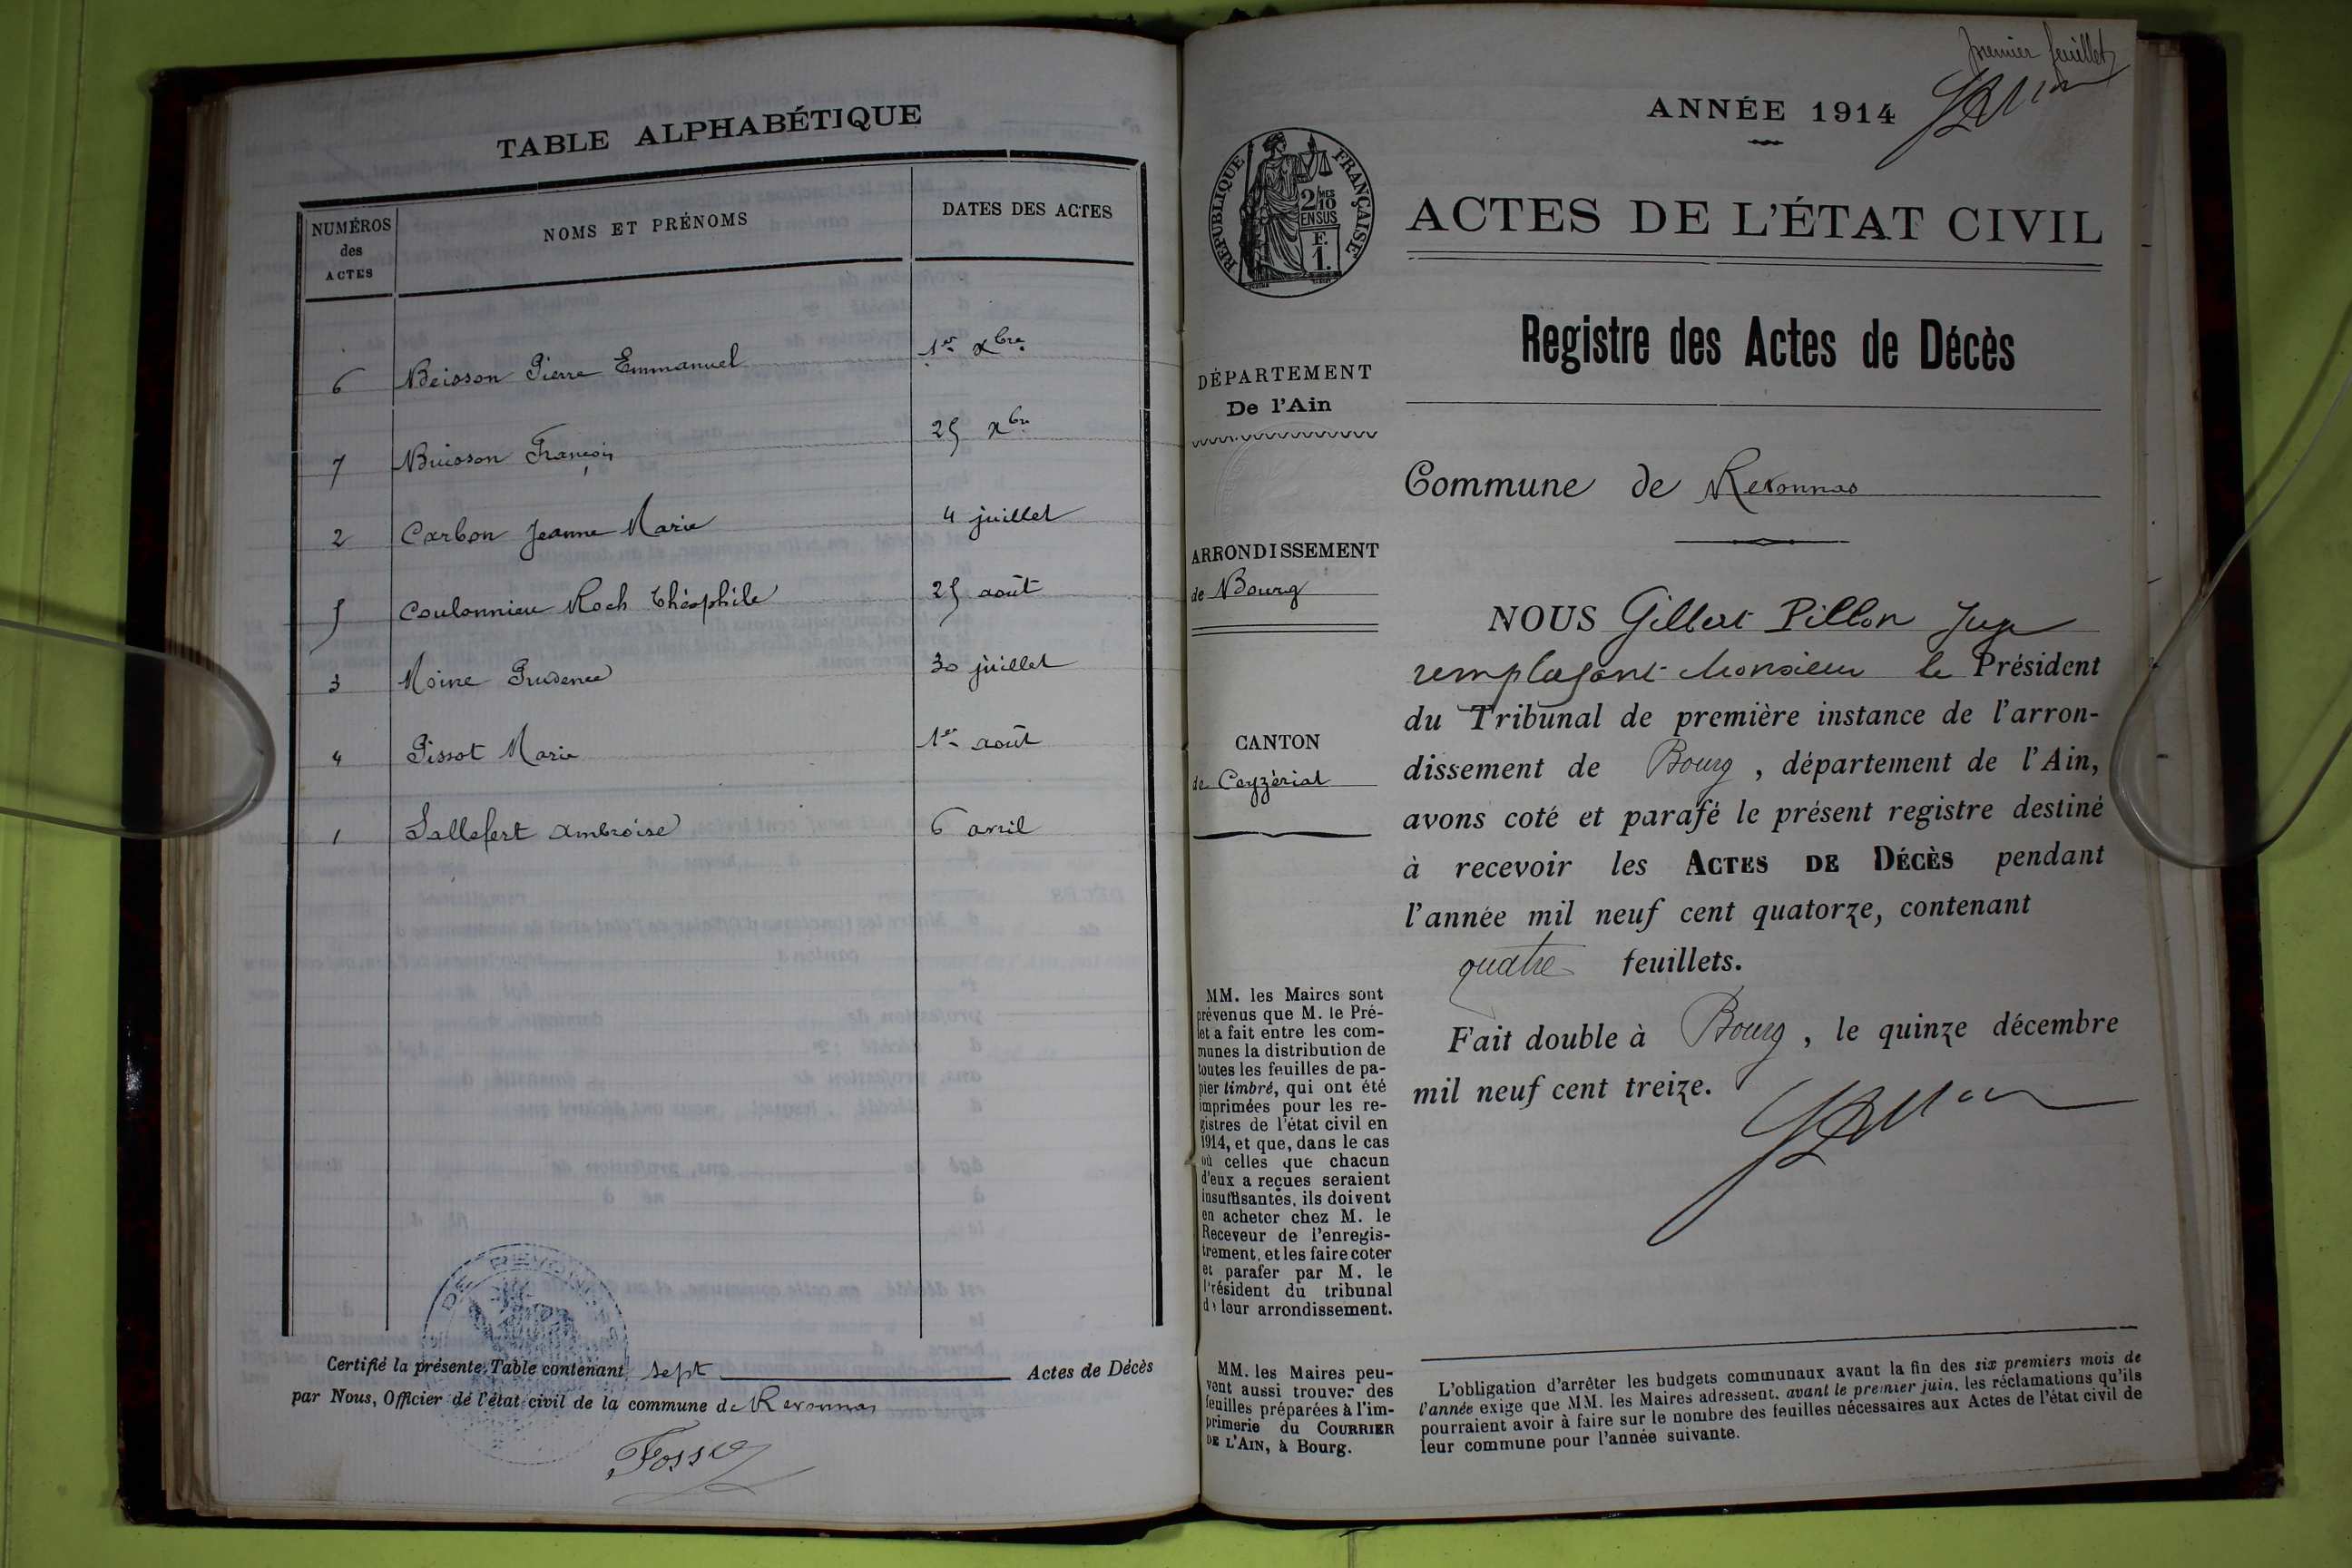 TABLE ALPHABÉTIQUE
NUMÉROS
des
ACTES
NOMS ET PRÉNOMS
DATES DES ACTES
6 Beisson Pierre Emmanuel 1er Xbre
7 Buisson François 25 Xbre
2 Carbon Jeanne Marie 4 juillet
5 Coulonnieu Roch Théophile 25 août
3 Moine Prudence 30 juillet
4 Pissot Marie 1er août
1 Sallefert Ambroise 6 avril
Certifié la présente Table contenant sept Actes de Décès
par Nous, Officier de l'état civil de la commune de Revonnas
premier feuillet
ANNÉE 1914
RÉPUBLIQUE FRANÇAISE
2/10 MES
EN SUS
F.
1.
ACTES DE L'ÉTAT CIVIL
Registre des Actes de Décès
DÉPARTEMENT
De l'Ain
Commune de Revonnas
ARRONDISSEMENT
de Bourg
CANTON
de Ceyzériat
NOUS Gilbert Pillon Juge
remplaçant Monsieur le Président
du Tribunal de première instance de l'arron-
dissement de Bourg, département de l'Ain,
avons coté et parafé le présent registre destiné
à recevoir les ACTES DE DÉCÈS pendant
l'année mil neuf cent quatorze, contenant
quatre feuillets.
Fait double à Bourg, le quinze décembre
mil neuf cent treize.
MM. les Maires sont
prévenus que M. le Pré-
fet a fait entre les com-
munes la distribution de
toutes les feuilles de pa-
pier timbré, qui ont été
imprimées pour les re-
gistres de l'état civil en
1914, et que, dans le cas
où celles que chacun
d'eux a reçues seraient
insuffisantes, ils doivent
en acheter chez M. le
Receveur de l'enregis-
trement, et les faire coter
et parafer par M. le
Président du tribunal
de leur arrondissement.
MM. les Maires peu-
vent aussi trouver des
feuilles préparées à l'im-
primerie du COURRIER
DE L'AIN, à Bourg.
L'obligation d'arrêter les budgets communaux avant la fin des six premiers mois de
l'année exige que MM. les Maires adressent, avant le premier juin, les réclamations qu'ils
pourraient avoir à faire sur le nombre des feuilles nécessaires aux Actes de l'état civil de
leur commune pour l'année suivante.